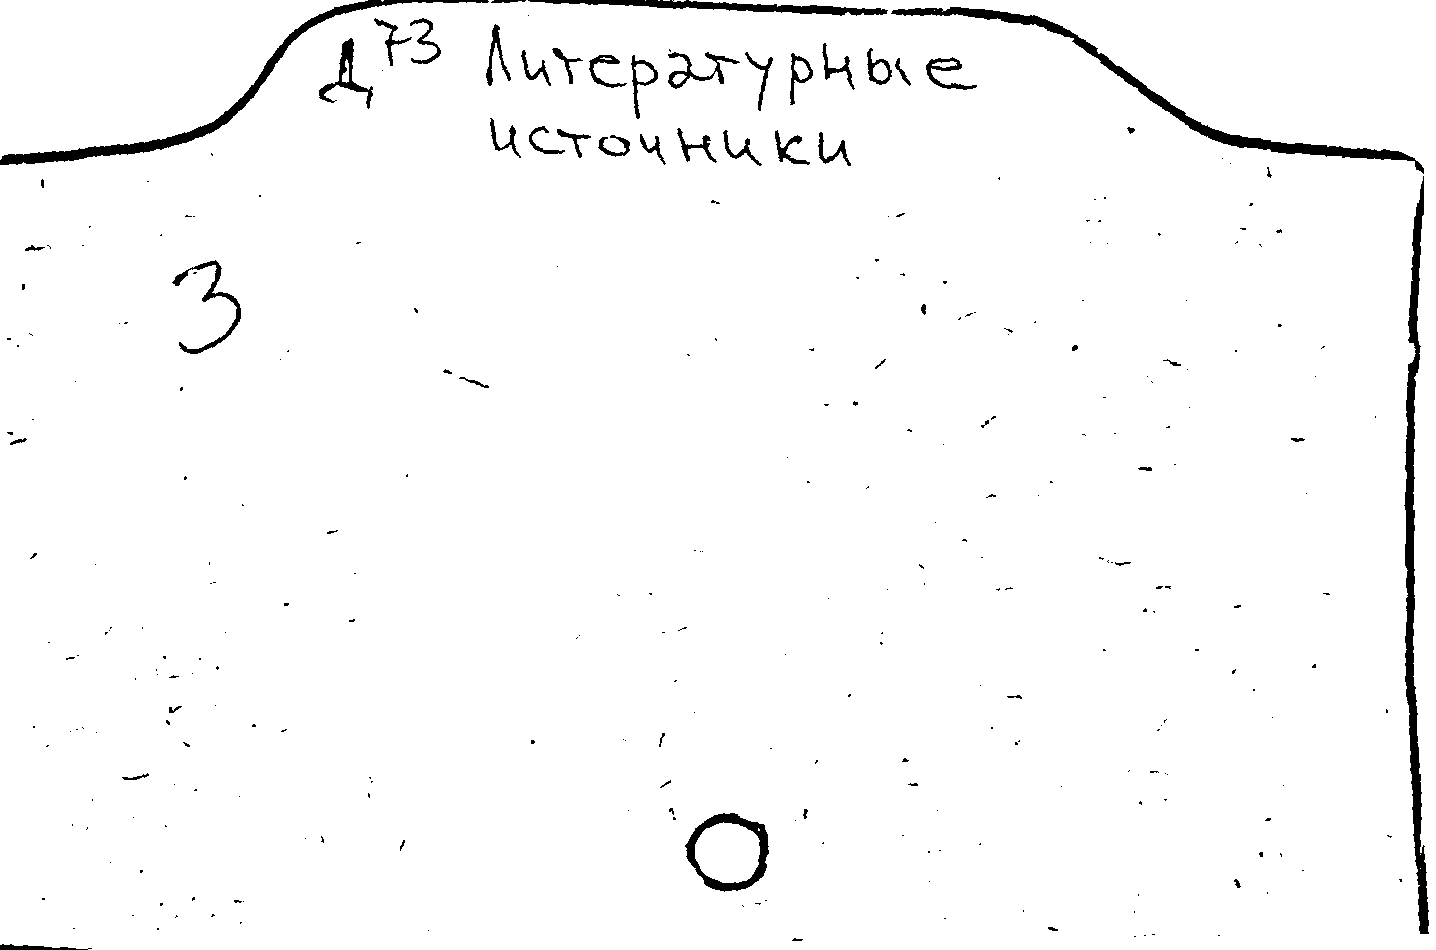 Д73 Литературные
источники
3